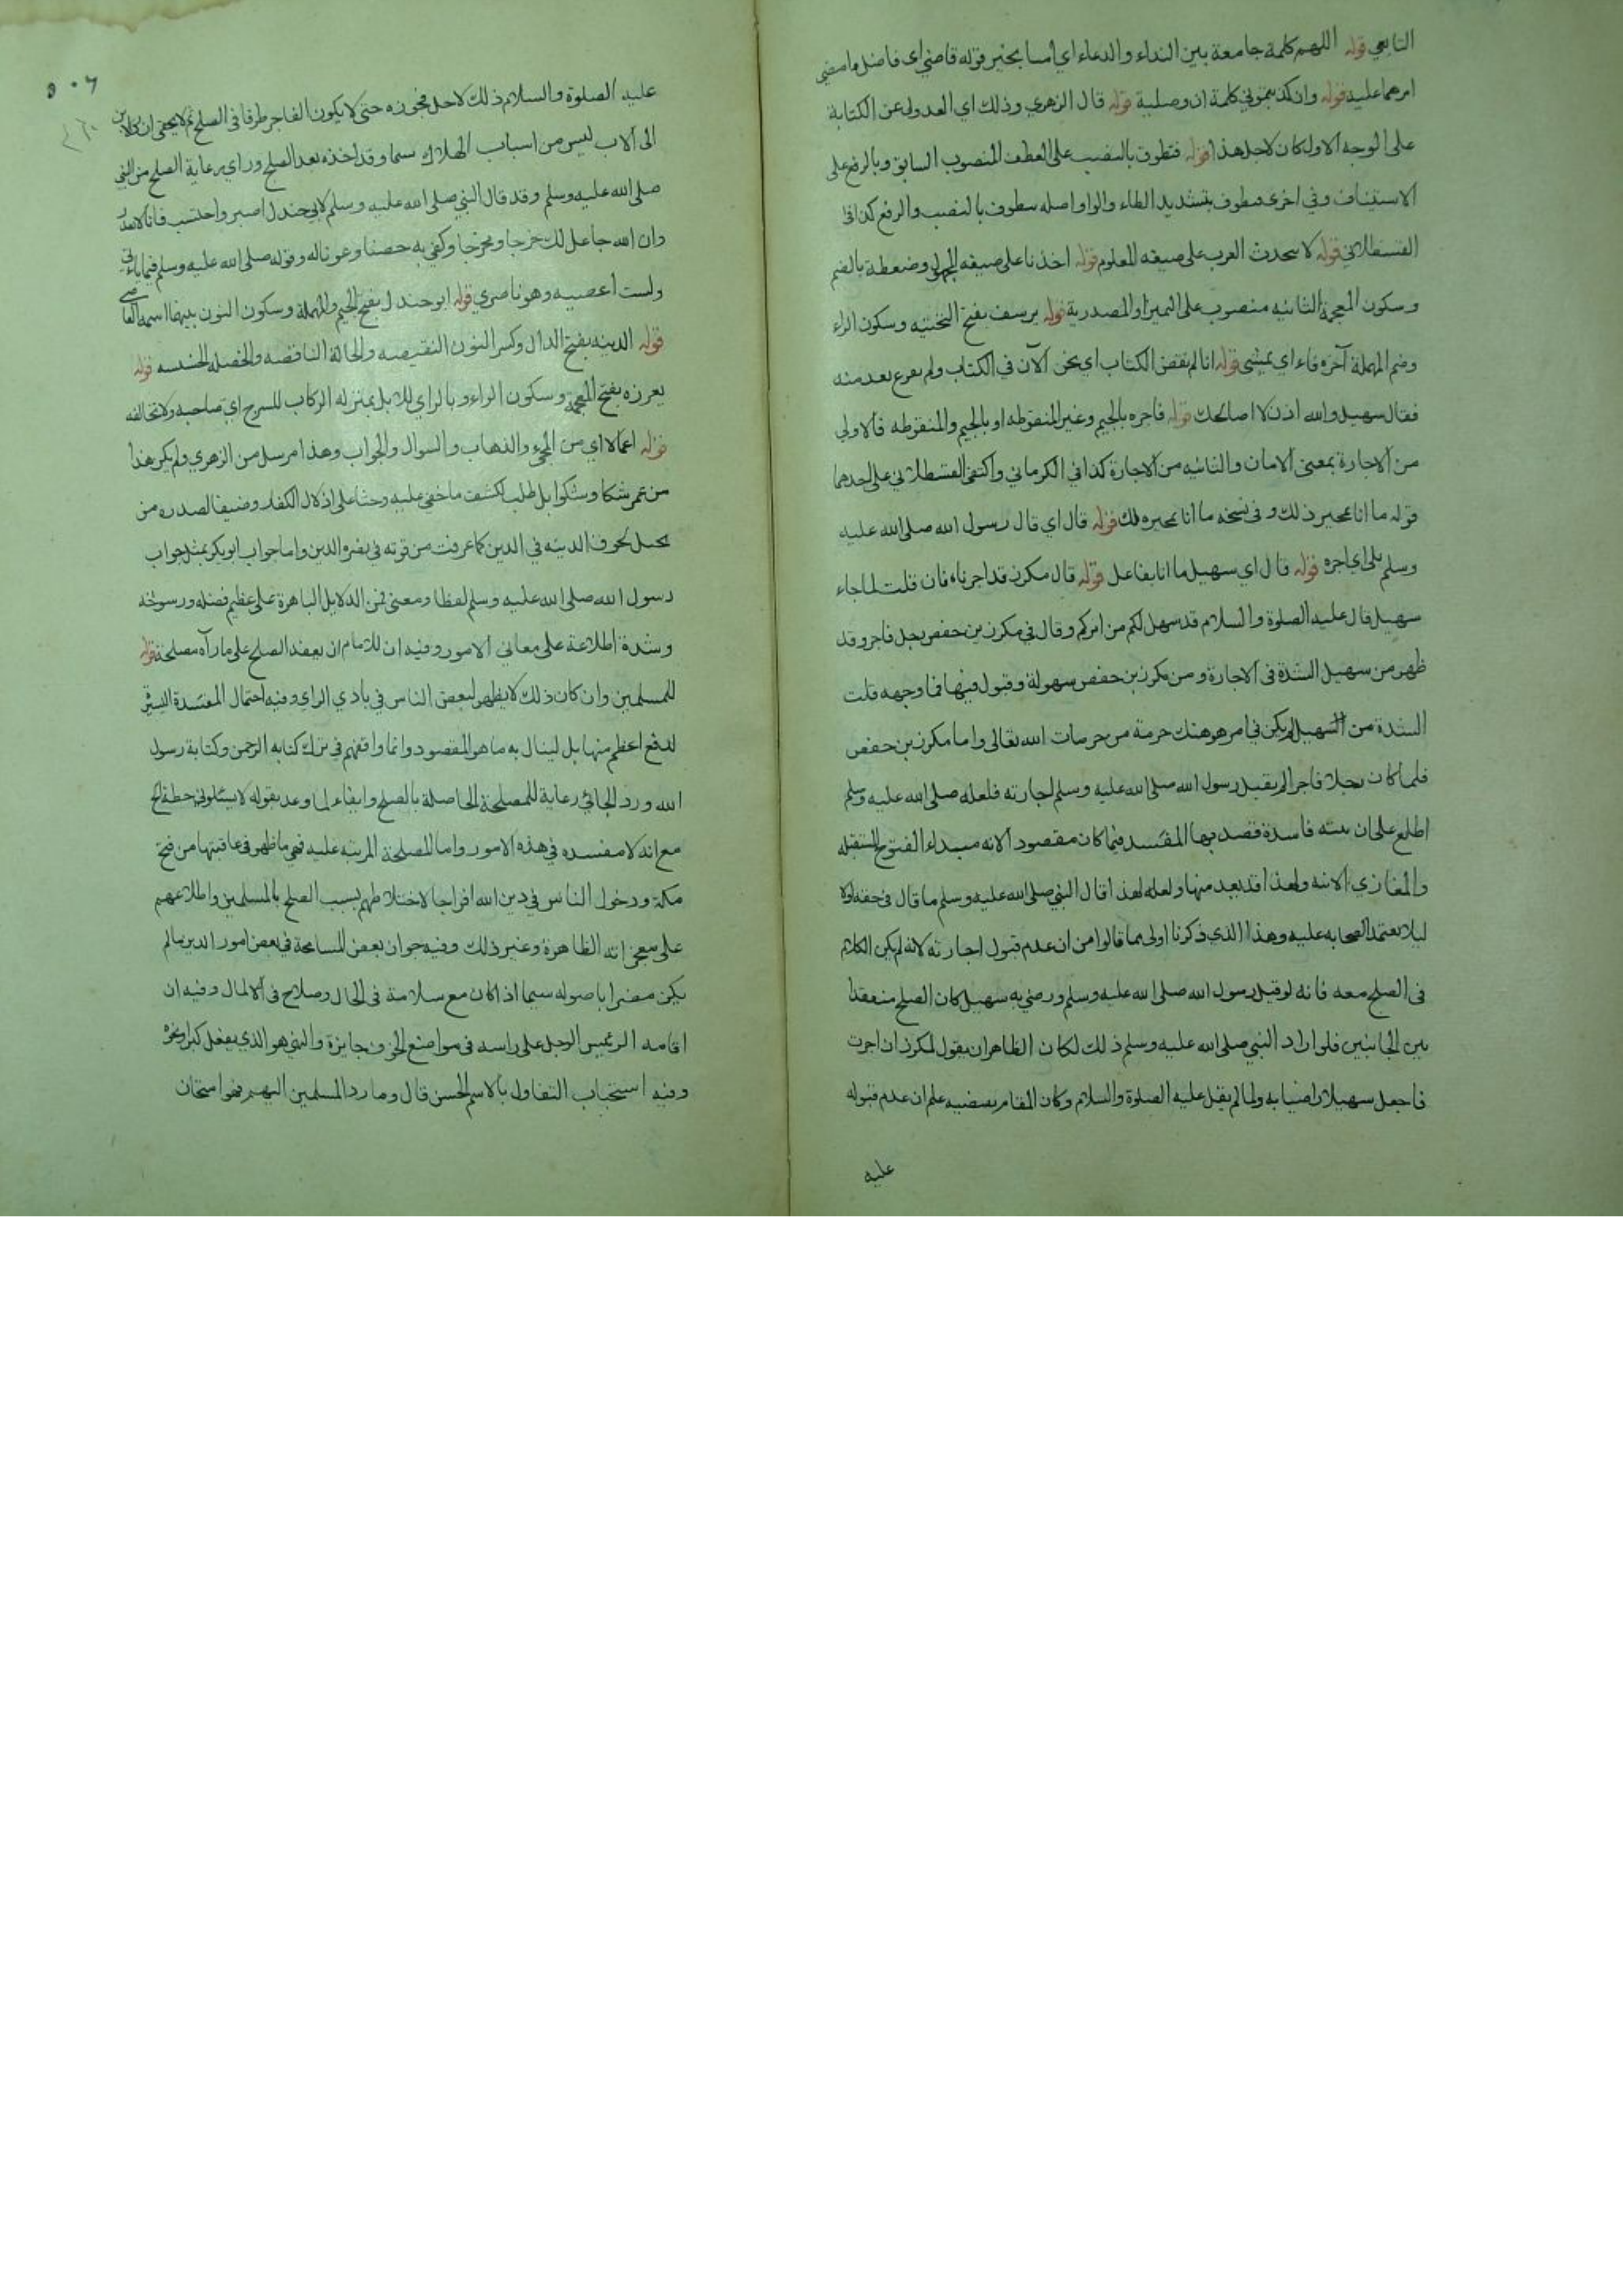 التابعي قوله اللهم كلمة جامعة بين النداء والدعاء اي امنا بخير قوله قاضي اي فاضل ما مضي
امرهما عليه قوله وان كذبتموني كلمة ان وصلية قوله قال الزهري وذلك اي العدول عن الكتابة
على الوجه الاول كان لاجل هذا قوله فتطوف بالنصب على العطف المنصوب السابق وبالرفع على
الاستيناف وفي اخرى فطوف بتشديد الطاء والواو اصله نتطوف بالنصب والرفع كذا في
القسطلاني قوله لا تتحدث العرب على صيغه المعلوم قوله اخذنا على صيغه المجهول وضغطة بالضم
وسكون المعجمة الثانيه منصوب على التميز او المصدرية قوله يرسف بفتح التحتيه وسكون الراء
وضم المهملة آخره فاء اي يمشي قوله انا لم نقض الكتاب اي نحن الآن في الكتاب ولم نفرغ بعد منه
فقال سهيل والله اذن لا اصالحك قوله فاجره بالجيم وغير المنقوطه او بالجيم والمنقوطه فالاولي
من الاجارة بمعنى الامان والثانيه من الاجازة كذا في الكرماني واكتفى القسطلاني على احدهما
قوله ما انا بمجير ذلك وفي نسخه ما انا بمجيره لك قوله قال اي قال رسول الله صلى الله عليه
وسلم بلى اي اجره قوله قال اي سهيل ما انا بفاعل قوله قال مكرز قد اجرناه فان قلت لما جاء
سهيل قال عليه الصلوة والسلام قد سهل لكم من امركم وقال في مكرز بن حفص رجل فاجر وقد
ظهر من سهيل الشدة في الاجارة ومن مكرز بن حفص سهولة وقبول فيها فما وجهه قلت
الشدة من السهيل لم يكن في امر هو هتك حرمة من حرمات الله تعالى واما مكرز بن حفص
فلما كان رجلا فاجرا لم يقبل رسول الله صلى الله عليه وسلم اجارته فلعله صلى الله عليه وسلم
اطلع على ان نيته فاسدة قصد بها المفسد فيما كان مقصود الانه مبداء الفتوح المستقبله
والمغازي الاتيه ولهذا قد بعد منها ولعله لهذا قال النبي صلى الله عليه وسلم ما قال في حقه اولا
ليلا يعتمد الصحابه عليه وهذا الذي ذكرنا اولى مما قالوا من ان عدم قبول اجارته لانه لم يكن الكلام
في الصلح معه فانه لو قبل رسول الله صلى الله عليه وسلم ورضي به سهيل كان الصلح منعقدا
بين الجانبين فلو اراد النبي صلى الله عليه وسلم ذلك لكان الظاهر ان يقول لمكرز ان اجرت
فاجعل سهيلا راضيا به ولما لم يقل عليه الصلوة والسلام وكان المقام يقتضيه علم ان عدم قبوله
عليه
٥٠٦
عليه الصلوة والسلام ذلك لاجل فجوره حتى لا يكون الفاجر طرفا في الصلح ثم لا يخفى ان
الى الاب ليس من اسباب الهلاك سيما وقد اخذه بعد الصلح وراي رعاية الصلح من النبي
صلى الله عليه وسلم وقد قال النبي صلى الله عليه وسلم لابي جندل اصبر واحتسب فانا لا نغدر
وان الله جاعل لك فرجا ومخرجا وكفي به حصنا وعونا له وقوله صلى الله عليه وسلم فيما ياتي
ولست اعصيه وهو ناصري قوله ابو جندل بفتح الجيم والمهملة وسكون النون بينهما اسمه العاصي
قوله الدنيه بفتح الدال وكسر النون النقيصه والحالة الناقصه والخصله الخسسه قوله
بغرزه بفتح المعجمة وسكون الراء وبالزاي للابل بمنزله الركاب للسرج اي صاحبه ولا تخالفه
قوله اعمالا اي من المجيء والذهاب والسوال والجواب وهذا مرسل من الزهري ولم يكن هذا
من عمر شكا وشكوا بل طلب لكشف ما خفي عليه وحثا على اذلال الكفار وضيق الصدره من
تحمل لحوق الدنيه في الدين كما عرفت من قوته في نصره الدين واما جواب ابو بكر بمثل جواب
رسول الله صلى الله عليه وسلم لفظا ومعنى فمن الدلايل الباهرة على عظيم فضله ورسوخه
وشدة اطلاعة على معاني الامور وفيه ان للامام ان يعقد الصلح على ما رآه مصلحة قوله
للمسلمين وان كان ذلك لا يظهر لبعض الناس في بادي الراي وفيه احتمال المفسدة اليسيرة
لدفع اعظم منها بل لينال به ما هو المقصود وانما وافقهم في ترك كتابه الرحمن وكتابة رسول
الله ورد الجائي رعاية للمصلحة الحاصلة بالصلح وايفاء لما وعد بقوله لا يسئلوني خطة الخ
مع انه لا مفسده في هذه الامور واما المصلحة المرتبه عليه فهي ما ظهر في عاقبتها من فتح
مكة ودخول الناس في دين الله افواجا لاختلاطهم بسبب الصلح بالمسلمين واطلاعهم
على معجزاته الظاهرة وغير ذلك وفيه جواز بعض المسامحة في بعض امور الدين ما لم
يكن مضرا باصوله سيما اذا كان مع سلامة في الحال وصلاح في الامال وفيه ان
اقامه الرئيس الرجل على راسه في مواضع الخوف جايزة والنهي هو الذي يفعل كبرا وغره
وفيه استحباب التفاول بالاسم الحسن قال وما رد المسلمين اليهم فهو امتحان